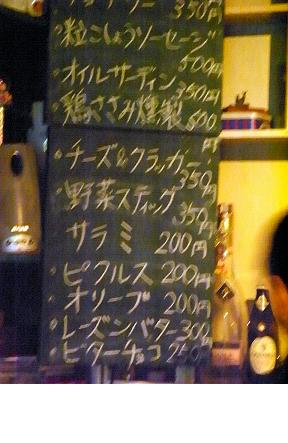 350円
・粒こしょうソーセージ
500円
・オイルサーディン
350円
・鶏ささみ燻製 500円
・チーズ&クラッカー
350円
・野菜スティック
350円
・サラミ 200円
・ピクルス 200円
・オリーブ 200円
・レーズンバター 300円
・ビターチョコ 250円